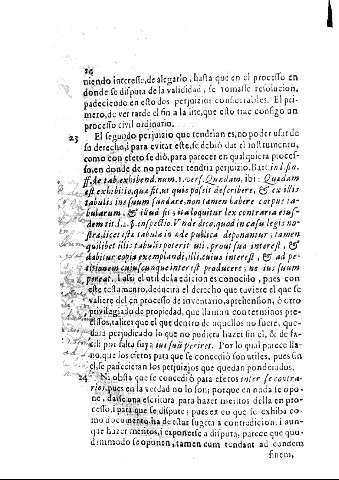 24
niendo interesse, de alegarlo, hasta que en el processo en
donde se disputa de la valididad, se tomasse resolucion,
padeciendo en esto dos perjuizios considerables. El pri-
mero, de ver tarde el fin a la lite, que esto trae consigo un
processo civil ordinario.
23 El segundo perjuizio que tendrian es, no poder usar de
su derecho, i para evitar este, se debiò dar el instrumento,
como con efeto se diò, para parecer en qualquiera proces-
so, en donde de no parecer tendria perjuizio. Bart. in l.
ff. de tab. exhibend. num. ibi: Quædam
est exhibitio, quæ fit, ut quis possit describere, & ex illis
tabulis ius suum fundare, non tamen habere corpus ta-
bularum, & istud sit, ita loquitur lex contraria eius-
dem tit. in casu legis no-
stræ, licet ista tabula in æde publica deponantur, tamen
quilibet illis tabulis poterit uti, prout sua interest, &
dabitur copia exemplandi, illi, cuius interest, & ad pe-
titionem cuiuscunque interest producere, ne ius suum
pereat. I assi el util de la edicion es conocido, pues con
este testamento, deducirà el derecho que tuviere el que se
valiere del en processo de inventario, aprehension, ò otro
privilegiado de propiedad, que llaman con terminos pre-
cissos, tales que el que dentro de aquellos no fuere, que-
darà perjudicado lo que no pudiera hazer sin el, & de fa-
cili pus falta suya ius suũ periret. Por lo qual parece lla-
no, que los efetos para que se concediò son utiles, pues sin
el, se padecieran los perjuizios que quedan ponderados.
24 Ni obsta que se concediò para efetos inter se contra-
rios, pues en la verdad no lo son; porque en nada se opo-
ne, darse una escritura para hazer meritos della en pro-
cesso, i para que se dispute; pues ex eo que se exhiba co-
mo documento, ha de estar sugeta a contradicion, i aun-
que hazer meritos, i exponerse a disputa, parece que quo-
dammodo se oponen, tamen cum tendant ad eundem
finem,